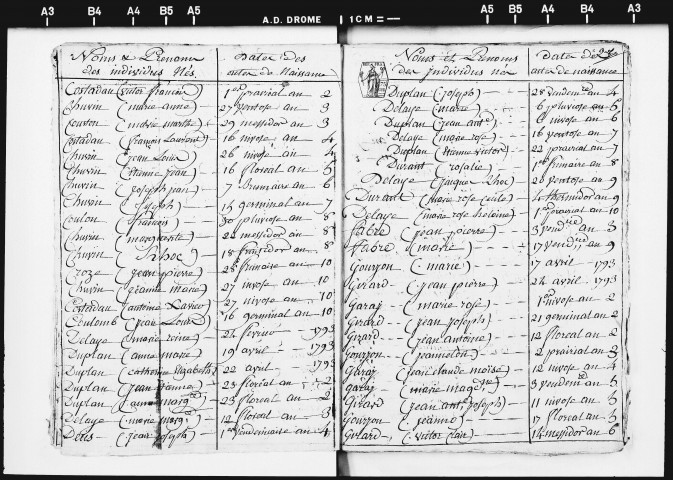 A3 B4 A4 B5 A5 A.D. DROME 1CM= A5 B5 A4 B4 A3
Noms & Prenoms
des individues Nés.
Dates des
actes de Naissance
Costadau (victor francois) 1er prairial an 2
Chuvin (marie anne) 27 ventose an 3
Couston (marie marthe) 29 messidor an 3
Costadau (françois Laurent) 16 nivose an 4
Chuvin (jean Louis) 26 nivose an 4
Chuvin (etienne jean) 16 floreal an 5
Chuvin (joseph jean) 7 Brumaire an 6
Chuvin (joseph) 14 germinal an 7
Coulon (françois) 30 pluviose an 8
Chuvin (marguerite) 20 messidor an 8
Chuvin (Roc) 18 fructidor an 8
Croze (jean pierre) 28 frimaire an 10
Chuvin (jeanne marie) 27 nivose an 10
Costadau (antoine Xavier) 27 nivose an 10
Coulomb (jean Louis) 16 germinal an 10
Delaye (marie reine) 24 fevrier 1793
Duplan (anne marie) 19 avril 1793
Duplan (catherine Elizabeth) 22 avril 1793
Duplan (jean etienne) 23 floreal an 2
Duplan (anne margute) 23 floreal an 2
Delaye (marie margte) 12 floreal an 3
Deus (jean joseph) 1er vendemiaire an 4
Noms et Prenoms
des Individues nés
Dates des
actes de naissance
Duplan (joseph) 28 vendemre an 4
Delaye (marie) 6 pluviose an 5
Duplan (jean ante) 6 nivose an 6
Delaye (marie rose) 16 ventose an 7
Duplan (etienne victor) 22 prairial an 7
Durant (rosalie) 1er frimaire an 8
Delaye (jacques Rhoc) 26 ventose an 9
Durant (marie rose cecile) 4 thermidor an 9
Delaye (marie rose heleine) 1er prairial an 10
Fabre (jean pierre) 3 vendre an 3
Fabre (marie) 17 vendre an 9
Gouyon (marie) 17 avril 1793
Girard (jean pierre) 24 avril 1793
Garaj (marie rose) 1er nivose an 2
Girard (jean joseph) 21 germinal an 2
Girard (jean antoine) 12 floreal an 2
Gouyon (jeanneton) 2 prairial an 3
Garaj (jean claude moïse) 12 nivose an 4
Garaj (marie magne) 3 vendemre an 5
Girard (jean ante joseph) 11 nivose an 5
Gouyon (jeanne) 17 floreal an 5
Girard (victor elan) 14 messidor an 6